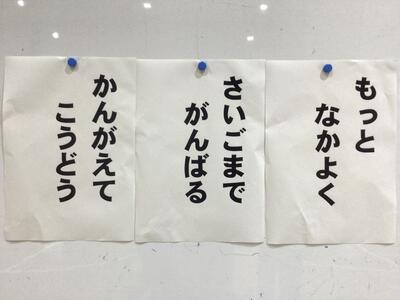 もっと
なかよく
さいごまで
がんばる
かんがえて
こうどう